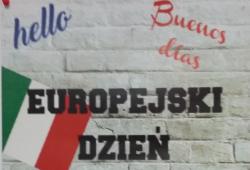 hello
Buenos
días
EUROPEJSKI
DZIEŃ